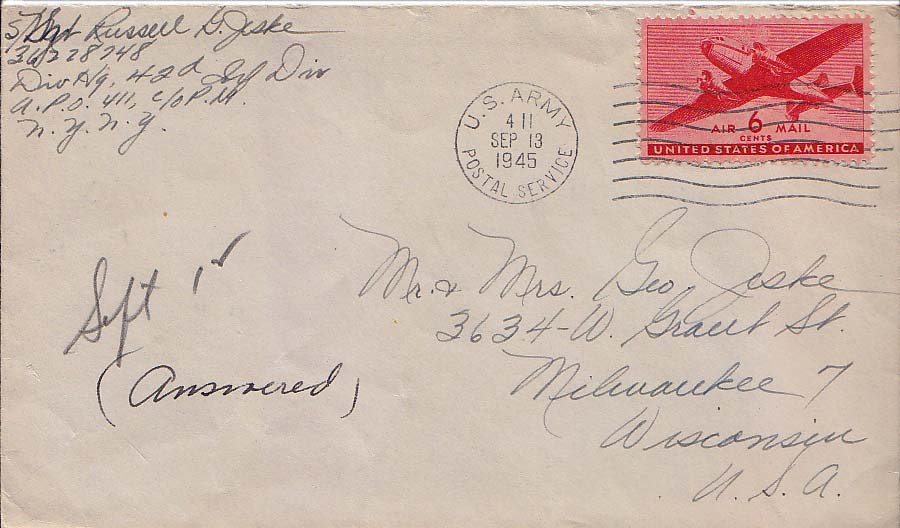 S/Sgt Russell G. Jeske
36228748
Div Hq, 42d Inf Div
A.P.O. 411, c/o P.M.
N.Y. N.Y.
U.S. ARMY
4 11
SEP 13
1945
POSTAL SERVICE
AIR 6 MAIL
CENTS
UNITED STATES OF AMERICA
Mr. & Mrs. Geo Jeske
3634-W. Grant St.
Milwaukee 7
Wisconsin
U. S. A.
Sept
(Answered)